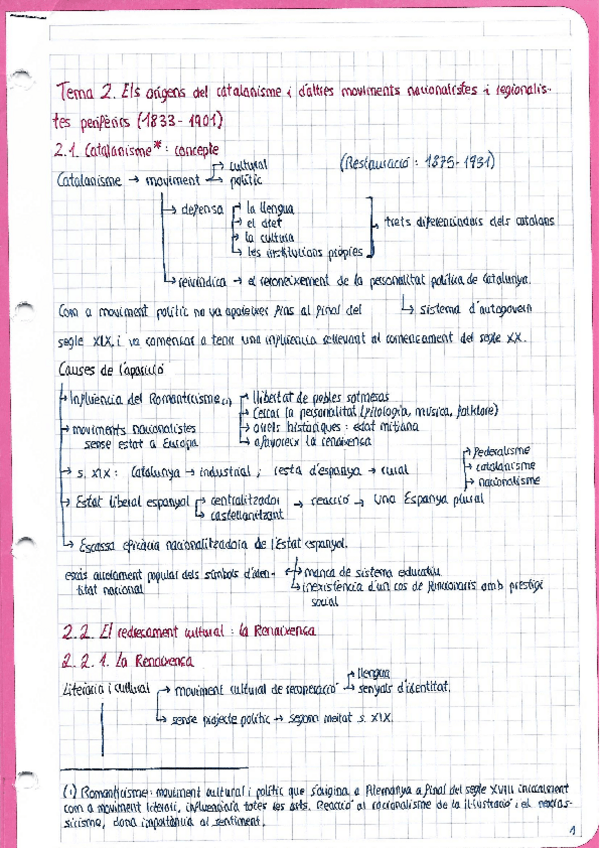 Tema 2. Els orígens del catalanisme i d'altres moviments nacionalistes i regionalis-
tes perifèrics (1833-1901)
2.1. Catalanisme*: concepte
(Restauració: 1875-1931)
Catalanisme → moviment → cultural
→ polític
→ defensa → la llengua
→ el dret
→ la cultura
→ les institucions pròpies
→ trets diferenciadors dels catalans
→ reivindica → el reconeixement de la personalitat política de Catalunya.
↳ sistema d'autogovern
Com a moviment polític no va aparèixer fins al final del
segle XIX, i va començar a tenir una influència rellevant al començament del segle XX.
Causes de l'aparició
→ Influència del Romanticisme(1) → llibertat de pobles sotmesos
→ Cercar la personalitat (filologia, música, folklore)
→ arrels històriques: edat mitjana
→ afavoreix la renaixença
→ moviments nacionalistes
sense estat a Europa
→ s. XIX: Catalunya → industrial; resta d'espanya → rural
→ Estat liberal espanyol → centralitzador
→ castellanitzant
→ reacció → una Espanya plural
→ Federalisme
→ catalanisme
→ nacionalisme
→ Escassa eficàcia nacionalitzadora de l'Estat espanyol.
escàs arrelament popular dels símbols d'iden-
titat nacional
→ manca de sistema educatiu
→ inexistència d'un cos de funcionaris amb prestigi
social
2.2. El redreçament cultural: la Renaixença
2.2.1. La Renaixença
Literària i cultural → moviment cultural de recuperació → llengua
→ senyals d'identitat.
→ sense projecte polític → segona meitat s. XIX.
(1) Romanticisme: moviment cultural i polític que s'origina a Alemanya a final del segle XVIII inicialment
com a moviment literari, influenciarà totes les arts. Reacció al racionalisme de la il·lustració i el neoclas-
sicisme, dona importància al sentiment.
1